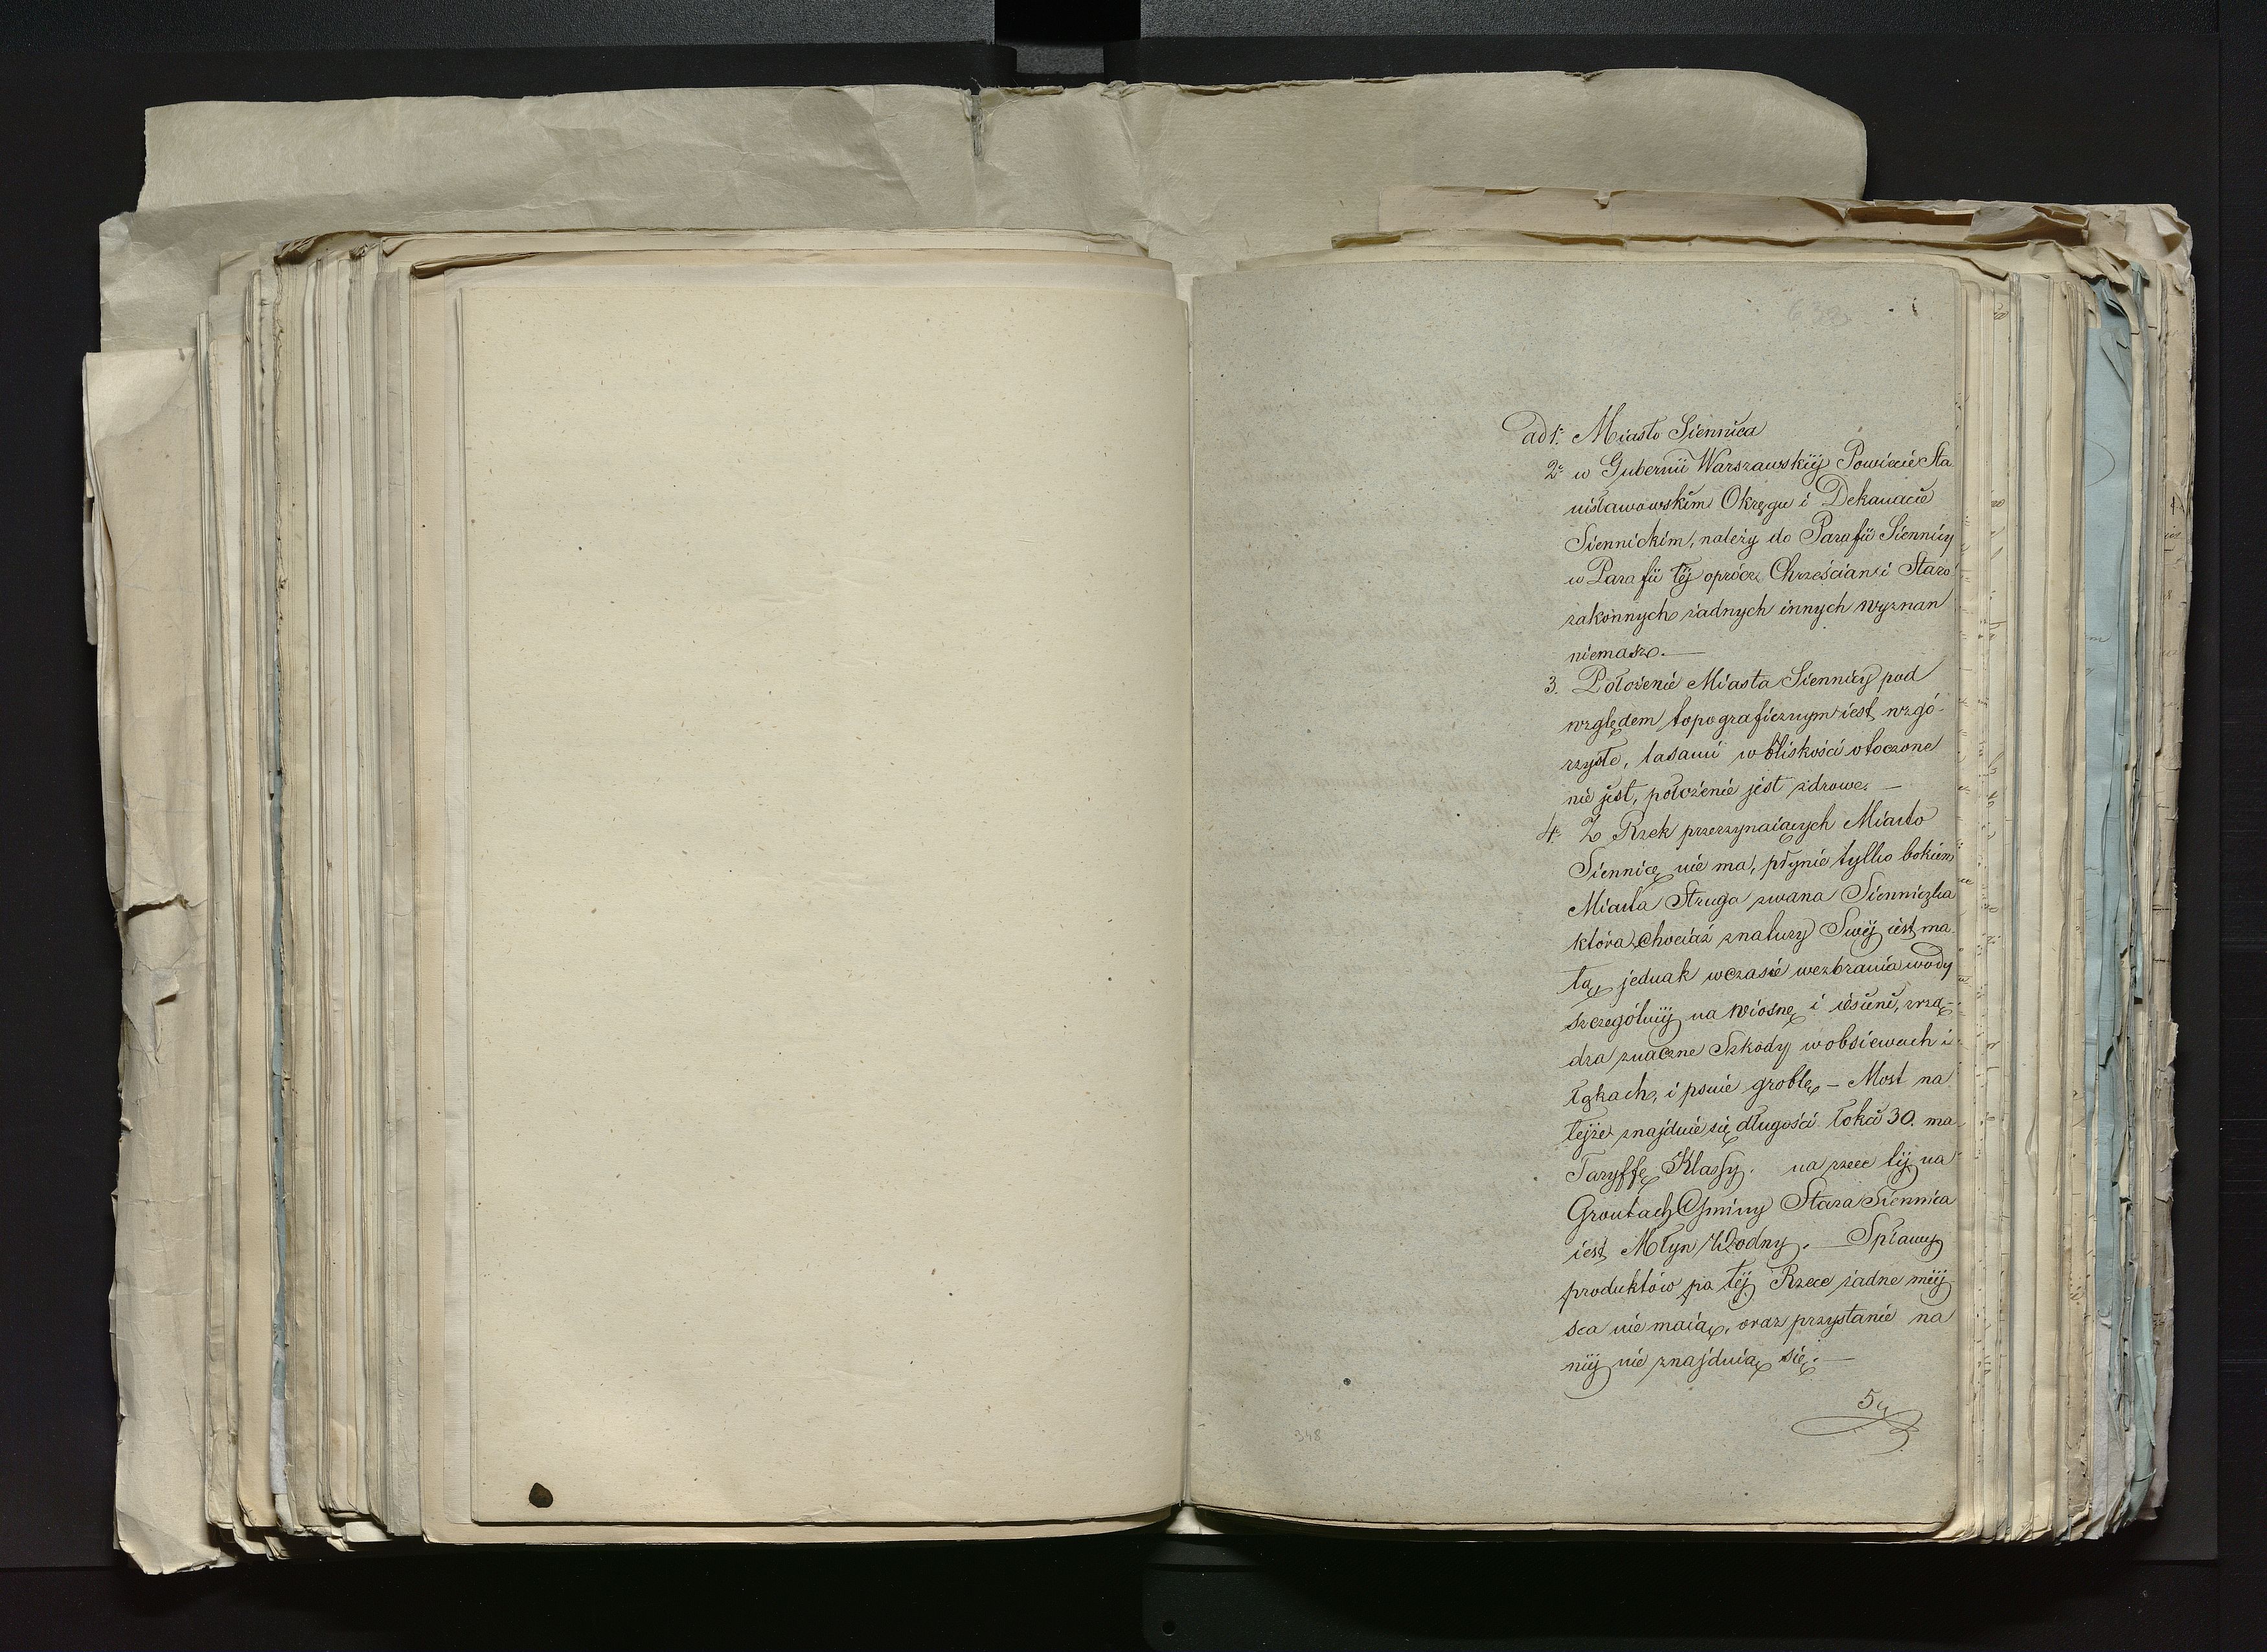 632
ad 1. Miasto Siennica
2. w Gubernii Warszawskiéj Powiecie Sta
nisławowskim Okręgu i Dekanacie
Siennickim, należy do Parafii Siennicy
w Parafii téj oprócz Chrześcian i Staro
zakonnych żadnych innych wyznan
niemasz. —
3. Położenie Miasta Siennicy pod
względem topograficznym iest wzgó-
rzyste, lasami w bliskości otoczone
nie jest, położenie jest zdrowe. —
4. Z Rzek przerzynaiących Miasto
Siennicę nie ma, płynie tylko bokiem
Miasta Struga zwana Sienniczka
która chociaż z natury Swéj iest ma
łą, jednak w czasie wezbrania wody
szczególniéj na wiosnę i iesieni, zrzą-
dza znaczne Szkody w obsiewach i
łąkach, i psuie groble, — Most na
tejże znajduie się długości łokci 30. ma
Taryffę Klassy. na rzece téj na
Grontach Gminy Stara Siennica
iest Młyn Wodny. — Spławy
produktów po téj Rzece żadne miéj
sca nie maią, oraz przystanie na
niéj nie znajduią się. —
5
348